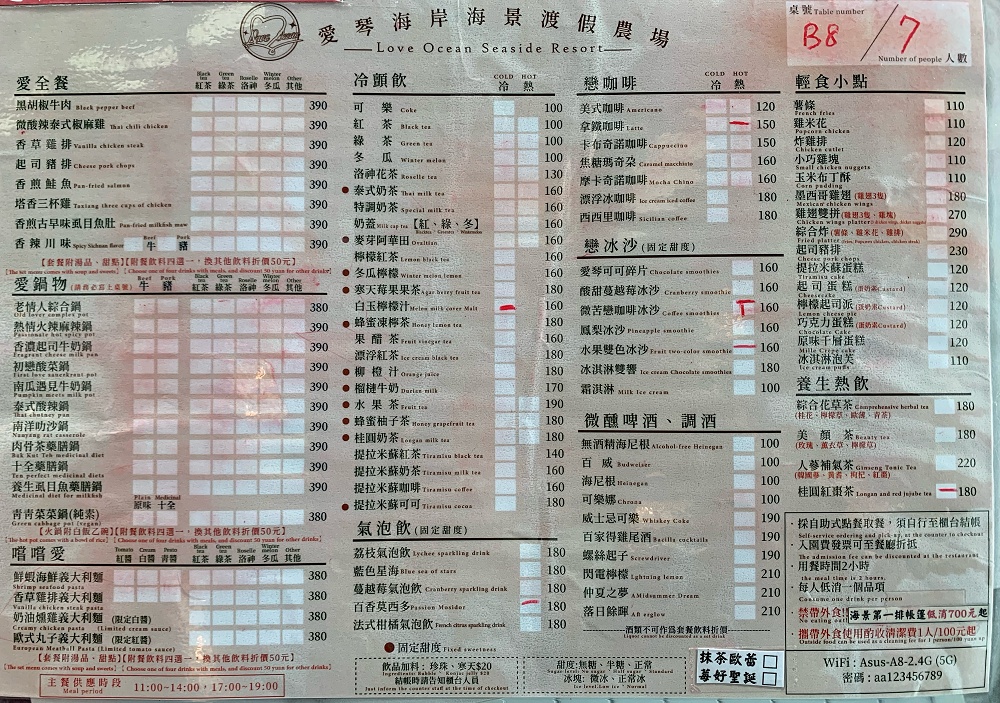 愛琴海岸海景渡假農場
Love Ocean Seaside Resort
桌號 Table number
B8 / 7
Number of people 人數
愛全餐 Black tea 紅茶 Green tea 綠茶 Roselle 洛神 Winter melon 冬瓜 Other 其他
黑胡椒牛肉 Black pepper beef 390
微酸辣泰式椒麻雞 Thai chili chicken 390
香草雞排 Vanilla chicken steak 390
起司豬排 Cheese pork chops 390
香煎鮭魚 Pan-fried salmon 390
塔香三杯雞 Taxiang three cups of chicken 390
香煎古早味虱目魚肚 Pan-fried milkfish maw 390
香辣川味 Spicy Sichuan flavor Beef 牛 Pork 豬 390
【套餐附湯品、甜點】【附餐飲料四選一，換其他飲料折價50元】
【The set menu comes with soup and sweets】【Choose one of four drinks with meals, and discount 50 yuan for other drinks】
愛鍋物 (請務必寫上桌號) Beef 牛 Pork 豬 Black tea 紅茶 Green tea 綠茶 Roselle 洛神 Winter melon 冬瓜 Other 其他
老情人綜合鍋 390
Old lover complex pot
熱情火辣麻辣鍋 390
Passionate hot spicy pot
香濃起司牛奶鍋 390
Fragrant cheese milk pan
初戀酸菜鍋 390
First love sauerkraut pot
南瓜遇見牛奶鍋 390
Pumpkin meets milk pot
泰式酸辣鍋 390
Thai chutney pan
南洋叻沙鍋 390
Nanyang rat casserole
肉骨茶藥膳鍋 390
Bak Kut Teh medicinal diet
十全藥膳鍋 390
Ten perfect medicinal diets
養生虱目魚藥膳鍋 390
Medicinal diet for milkfish
Plain 原味 Medicinal 十全
青青菜菜鍋(純素) 380
Green cabbage pot (vegan)
【火鍋附白飯乙碗】【附餐飲料四選一，換其他飲料折價50元】
【The hot pot comes with a bowl of rice】【Choose one of four drinks with meals, and discount 50 yuan for other drinks】
嚐嚐愛 Tomato 紅醬 Cream 白醬 Pesto 青醬 Black tea 紅茶 Green tea 綠茶 Roselle 洛神 Winter melon 冬瓜 Other 其他
鮮蝦海鮮義大利麵 380
Shrimp seafood pasta
香草雞排義大利麵 380
Vanilla chicken steak pasta
奶油燻雞義大利麵 (限定白醬) 380
Creamy chicken pasta (Limited cream sauce)
歐式丸子義大利麵 (限定紅醬) 380
European Meatball Pasta (Limited tomato sauce)
【套餐附湯品、甜點】【附餐飲料四選一，換其他飲料折價50元】
【The set menu comes with soup and sweets】【Choose one of four drinks with meals, and discount 50 yuan for other drinks】
主餐供應時段 11:00~14:00，17:00~19:00
Meal period
冷顫飲 COLD 冷 HOT 熱
可樂 Coke 100
紅茶 Black tea 100
綠茶 Green tea 100
冬瓜 Winter melon 100
洛神花茶 Roselle tea 130
泰式奶茶 Thai milk tea 160
特調奶茶 Special milk tea 160
奶蓋 Milk cover【紅、綠、冬】 160
麥芽阿華田 Ovaltine 160
檸檬紅茶 Lemon black tea 160
冬瓜檸檬 Winter melon lemon 160
寒天莓果果茶 Agar berry fruit tea 180
白玉檸檬汁 Melon milk cover Mali 160
蜂蜜凍檸茶 Honey lemon tea 160
果醋茶 Fruit vinegar tea 160
漂浮紅茶 Ice cream black tea 180
柳橙汁 Orange juice 180
榴槤牛奶 Durian milk 170
水果茶 Fruit tea 190
蜂蜜柚子茶 Honey grapefruit tea 180
桂圓奶茶 Longan milk tea 180
提拉米蘇紅茶 Tiramisu black tea 140
提拉米蘇奶茶 Tiramisu milk tea 160
提拉米蘇咖啡 Tiramisu coffee 160
提拉米蘇可可 Tiramisu cocoa 160
氣泡飲 (固定甜度)
荔枝氣泡飲 Lychee sparkling drink 180
藍色星海 Blue sea of stars 180
蔓越莓氣泡飲 Cranberry sparkling drink 180
百香莫西多 Passion Mosidor 180
法式柑橘氣泡飲 French citrus sparkling drink 180
固定甜度 Fixed sweetness
飲品加料：珍珠、寒天$20
Ingredients: Bubble、Konjac jelly $20
結帳時請告知櫃台人員
Just inform the counter staff at the time of checkout
戀咖啡 COLD 冷 HOT 熱
美式咖啡 Americano 120
拿鐵咖啡 Latte 150
卡布奇諾咖啡 Cappuccino 150
焦糖瑪奇朵 Caramel macchiato 160
摩卡奇諾咖啡 Mocha Chino 160
漂浮冰咖啡 Ice cream iced coffee 180
西西里咖啡 Sicilian coffee 180
戀冰沙 (固定甜度)
愛琴可可碎片 Chocolate smoothies 160
酸甜蔓越莓冰沙 Cranberry smoothie 160
微苦戀咖啡冰沙 Coffee smoothies 160
鳳梨冰沙 Pineapple smoothie 160
水果雙色冰沙 Fruit two-color smoothie 160
冰淇淋雙響 Ice cream Chocolate smoothies 180
霜淇淋 Milk Ice cream 100
微醺啤酒、調酒
無酒精海尼根 Alcohol-free Heinegan 100
百威 Budweiser 100
海尼根 Heinegan 100
可樂娜 Chrona 100
威士忌可樂 Whiskey Coke 190
百家得雞尾酒 Bacilla cocktails 190
螺絲起子 Screwdriver 190
閃電檸檬 Lghtning lemon 210
仲夏之夢 AMidsummer Dream 210
落日餘暉 Aft erglow 210
酒類不可作為套餐飲料折價
Liquor cannot be discounted as a set drink
甜度:無糖、半糖、正常
Sugar-level: No sugar、Half sugar、Standard
冰塊:微冰、正常冰
Ice level: Low ice、Normal
抹茶歐蕾
莓好聖誕
輕食小點
薯條 110
French fries
雞米花 110
Popcorn chicken
炸雞排 120
Chicken cutlet
小巧雞塊 110
Small chicken nuggets
玉米布丁酥 110
Corn pudding
墨西哥雞翅 (雞翅3隻) 180
Mexican chicken wings
雞翅雙拼 (雞翅3隻、雞塊) 270
Chicken wings platter
綜合炸 (薯條、雞米花、雞排) 290
Fried platter (fries, Popcorn chicken, chicken steak)
起司豬排 230
Cheese pork chops
提拉米蘇蛋糕 120
Tiramisu cake
起司蛋糕 (蛋奶素Custard) 120
Cheesecake
檸檬起司派 (蛋奶素Custard) 120
Lemon cheese pie
巧克力蛋糕 (蛋奶素Custard) 120
Chocolate Cake
原味千層蛋糕 120
Mille Crepe cake
冰淇淋泡芙 110
Ice cream puffs
養生熱飲
綜合花草茶 Comprehensive herbal tea 180
(桂花、檸檬草、歐薄、青茶)
美顏茶 Beauty tea 180
(玫瑰、薰衣草、檸檬草)
人蔘補氣茶 Ginseng Tonic Tea 220
(韓國蔘、黃耆、枸杞、紅棗)
桂圓紅棗茶 Longan and red jujube tea 180
．採自助式點餐取餐，須自行至櫃台結帳
Self-service ordering and pick-up, at the counter to checkout
．入園費發票可至餐廳折抵
The admission fee can be discounted at the restaurant
．用餐時間2小時
the meal time is 2 hours.
．每人低消一個品項
Consume one drink per person
．禁帶外食!! 海景第一排帳篷低消700元起
No eating out!!
．攜帶外食使用酌收清潔費1人/100元起
Outside food can be used as a cleaning fee for 1 person/100 yuan up
WiFi : Asus-A8-2.4G (5G)
密碼 : aa123456789